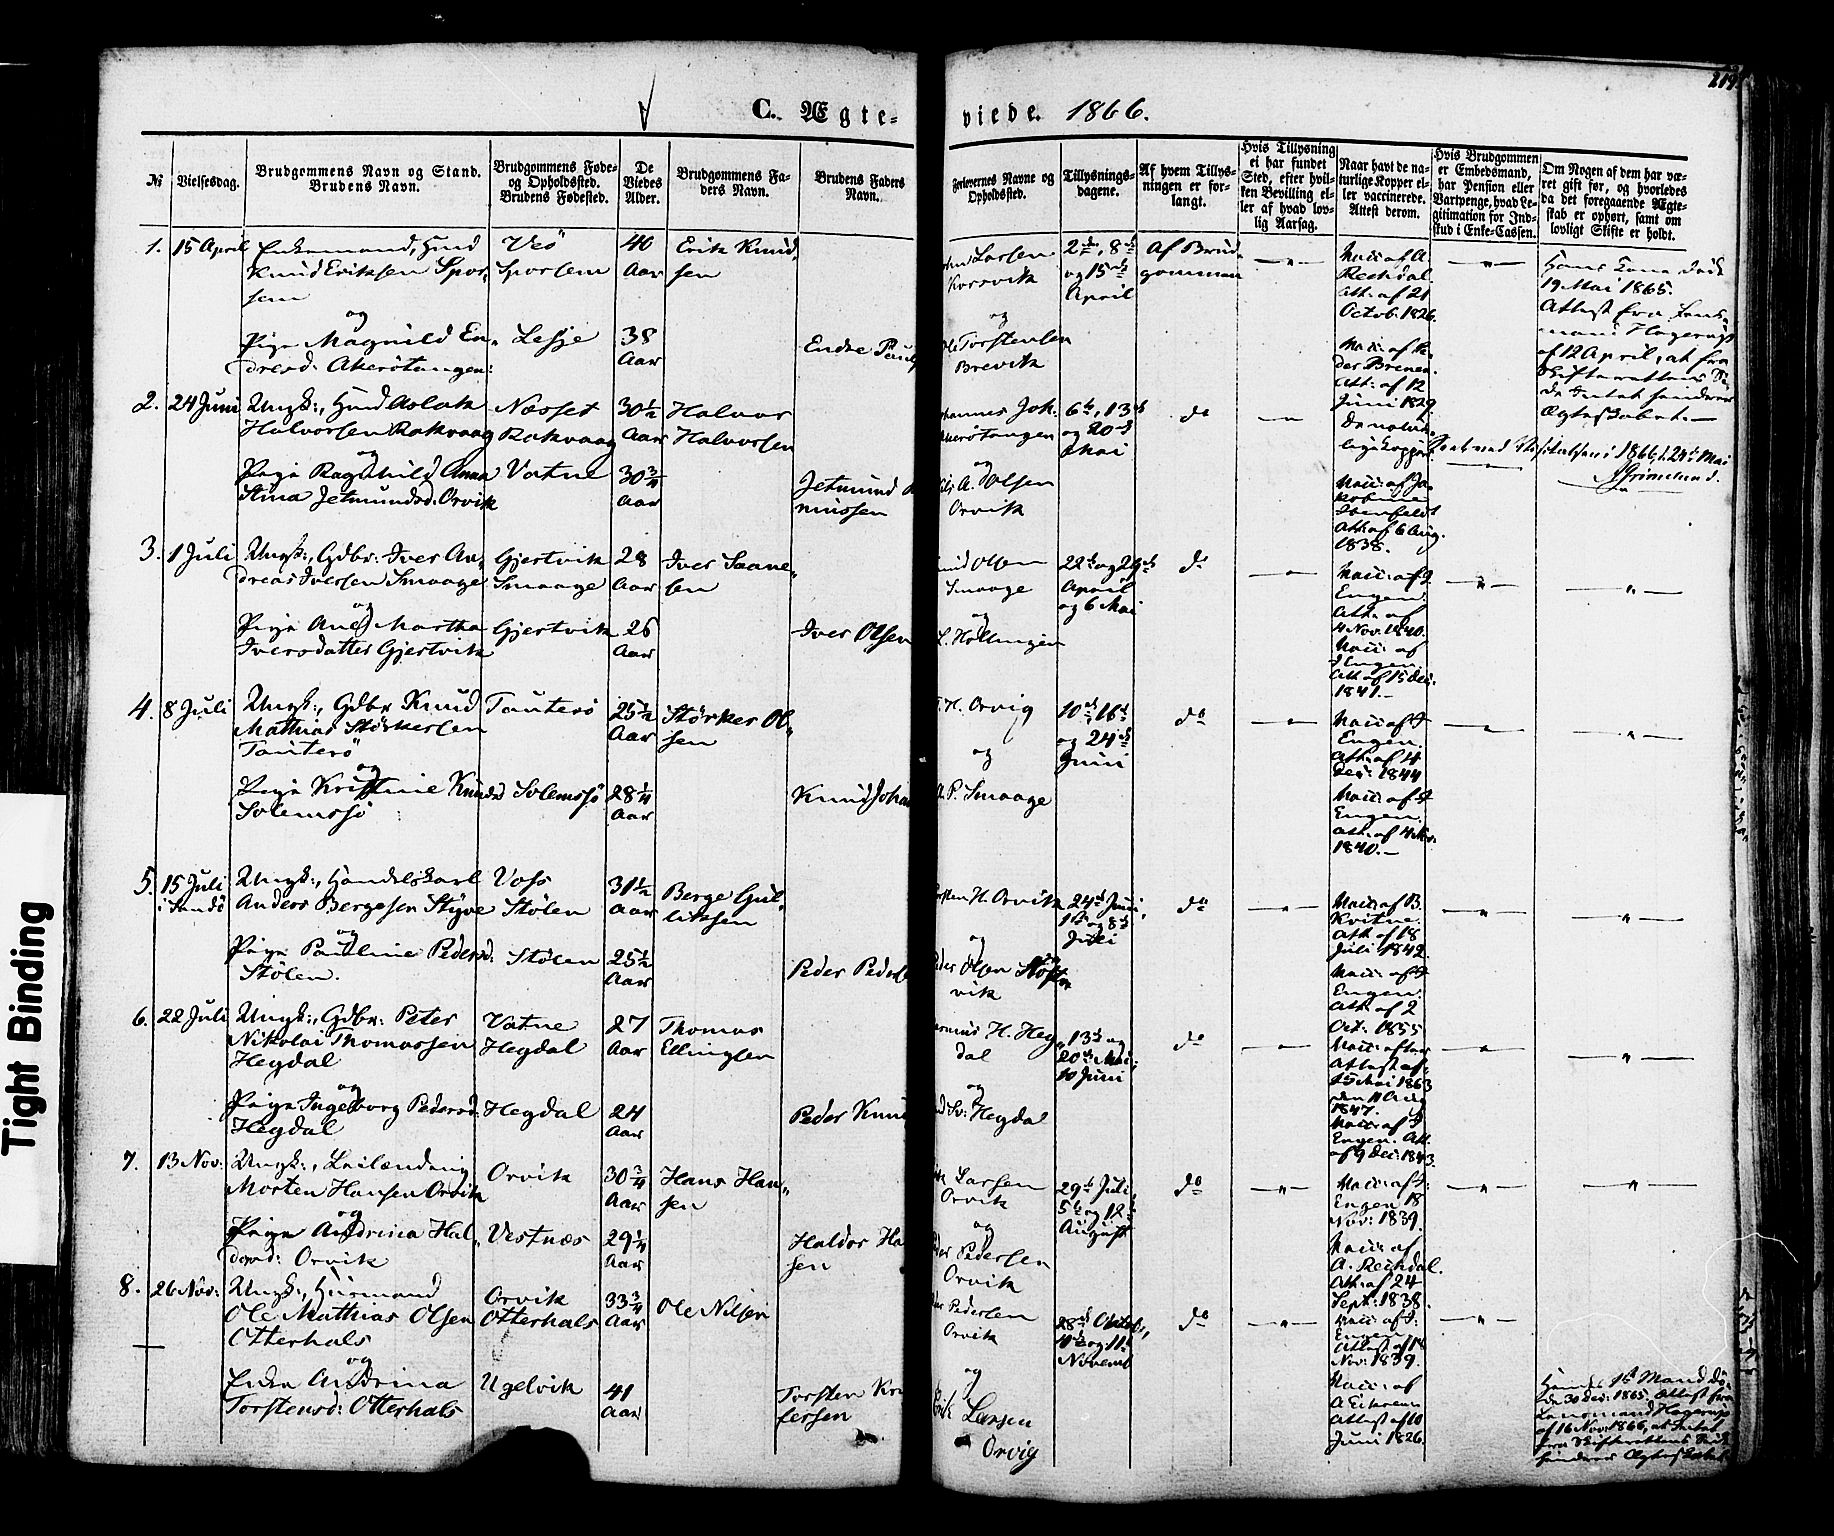 C. Ægte-viede. 1866.
219.
№
Vielsesdag.
Brudgommens Navn og Stand.
Brudens Navn.
Brudgommens Føde-
og Opholdssted.
Brudens Fødested.
De
Viedes
Alder.
Brudgommens Fa-
ders Navn.
Brudens Faders
Navn.
Forlovernes Navne og
Opholdssted.
Tillysnings-
dagene.
Af hvem Tillys-
ningen er for-
langt.
Hvis Tillysning
ei har fundet
Sted, efter hvil-
ken Bevilling el-
ler af hvad lov-
lig Aarsag.
Naar havt de na-
turlige Kopper el-
ler vaccinerede.
Attest derom.
Hvis Brudgommen
er Embedsmand,
har Pension eller
Vartpenge, hvad Le-
gitimation for Ind-
skud i Enke-Cassen.
Om Nogen af dem har væ-
ret gift før, og hvorledes
da det foregaaende Ægte-
skab er ophørt, samt om
lovligt Skifte er holdt.
1. 15 April
Enkemand, Hmd
Knud Eriksen Spor-
sem
og
Pige Magnild En-
dresd: Akerøtangen:
Veö
Sporsem
Lesje
40
Aar
38
Aar
Erik Knud-
sen
Endre Pauls
Larsen
Korsvik
og
Ole Torstensen
Brevik
2den, 8de
og 15de
April
Af Brud-
gommen
Vacc: af A.
Rechdal.
Att: af 21
Octob: 1826.
Vacc: af
Att: af 12
Juni 1829
Hans Kone døde
19 Mai 1865.
Attest fra Lens-
mand Hagerup
af 12 April, at fra
Skifterettens Si-
de Intet hindrer
Ægteskabet.—
2. 24 Juni
Ungk:, Hmd Aslak
Halvorsen Rakvaag
og
Pige Ragnhild Anna
Stina Jetmundsd: Orvik
Næsset
Rakvaag
Vatne
30½
Aar
30¾
Aar
Halvor
Halvorsen
Jetmund
mussen
Johannes Joh.
Akerøtangen
og
Nils A. Olsen
Orvik
6te, 13de
og 20de
Mai
do
De natur-
lige Kopper.
Vacc: af Ja-
kobine
Isenfeldt
Att: af 6 Aug.
1838.
i 1866 d. 24de Mai
Grimelund.
3. 1 Juli
Ungk:, Gdbr: Iver An-
dreas Iversen Smaage
og
Pige Ane Martha
Iversdatter Gjertvik
Gjertvik
Smaage
Gjertvik
28
Aar
26
Aar
Iver Saane-
sen
Iver Olsen
Knud Olsen
Smaage
og
L. Hollingen
22de og 29de
April
og 6 Mai
do
Vacc: af J.
Engen.
Att: af
4 Nov: 1840.
Vacc: af
J Engen.
Att af 15 Dec:
1841.—
4. 8 Juli
Ungk:, Gdbr Knud
Mathias Størkersen
Tauterø
og
Pige Kristine Knudsd
Solemsjö
Tauterø
Solemssjö
25½
Aar
28¼
Aar
Størker Ol-
sen
Knud Joha
T. H. Orvig
og
A. P. Smaage
10de, 16de
og 24de
Juni
do
Vacc: af J
Engen.
Att: af 4
Dec: 1844
Vacc: af J
Engen.
Att: af 4 Nov.
1840.—
5. 15 Juli
i Sandø
Ungk:, Handelskarl
Anders Bergesen Styve
og
Pige Pauline Pedersd:
Stølen.
Voss
Stølen
Stølen
31½
Aar
25½
Aar
Berge Gul-
liksen
Peder Peders
Torsten H. Orvik
og
Peder Olsen
vik
24de Juni,
1ste og 8de
Juli
do
Vacc: af B.
Kvitne.
Att: af 18
Juli 1842.
Vacc: af J
Engen.
Att: af 2
Oct: 1855
6. 22 Juli
Ungk:, Gdbr: Peter
Nikolai Thomassen
Hegdal
og
Pige Ingeborg Pedersd:
Hegdal
Vatne
Hegdal
Hegdal
27
Aar
24
Aar
Thomas
Ellingsen
Peder Knud
Rasmus H. Heg-
dal
og
Sv: Hegdal
13de og
20de Mai
10 Juni
do
Vacc: efter
Attest af
15 Mai 1863
den 11 Aug
1847.
Vacc: af J
Engen. Att.
af 9 Dec: 1843.
7. 13 Nov:
Ungk:, Leilænding
Morten Hansen Orvik
og
Pige Andrina Hal-
dorsd: Orvik
Orvik
Vestnæs
30¾
Aar
29¼
Aar
Hans Han-
sen
Haldor Ha
sen
Larsen
Orvik
og
Peder Pedersen
Orvik
29de Juli,
5te og 12te
August
do
Vacc: af J:
Engen 18
Nov: 1839.
Vacc: af
A. Rechdal.
Att: af 24
Sept: 1838.
8. 26 Nov:
Ungk:, Huusmand
Ole Mathias Olsen
Otterhals
og
Enke Andrina
Torstensd: Otterhals
Orvik
Otterhals
Ugelvik
33¾
Aar
41
Aar
Ole Nilsen
Torsten Kri
fersen
Pedersen
Orvik
og
Erik Larsen
Orvig
28de Octob:,
4de og 11te
Novemb
do
Vacc: af J:
Engen
Attest af 18
Nov: 1839.
Vacc: af
A Eikrem
Attest af 10
Juni 1826.
Hendes 1ste Mand dö-
de 30 Dec: 1865. Attest fra
Lensmand Hagerup
af 16 Nov: 1866, at Intet
fra Skifterettens Side
hindrer Ægteskabet.
Tight Binding